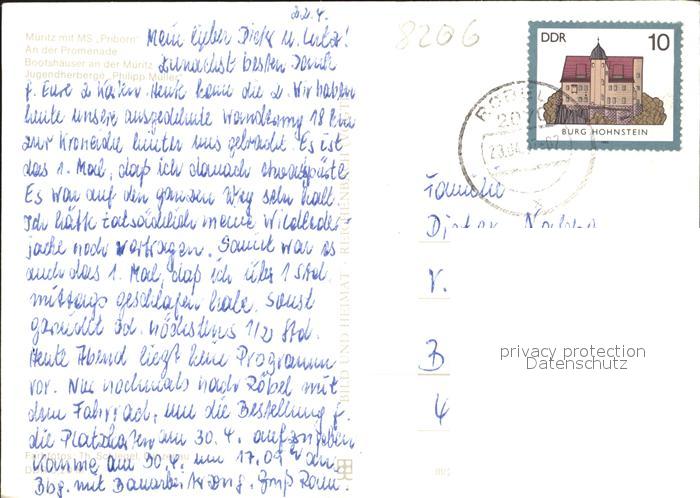 22.4.
Müritz mit MS „Priborn"
An der Promenade
Bootshäuser an der Müritz
Jugendherberge „Philipp Müller"
Mein lieber Dieter u. !
Zunächst besten Dank
f. Eure 2 Karten. Heute kam die 2. Wir haben
heute unsere ausgedehnte Wanderung 18 km
zur hinter uns gebracht. Es ist
das 1. Mal, daß ich danach etwas spürte
Es war auf den ganzen Weg sehr kalt.
Ich hätte tatsächlich meine Wildleder-
jacke noch vertragen. Somit war es
auch das 1. Mal, daß ich über 1 Std.
mittags geschlafen habe. Sonst
garnicht od. höchstens 1/2 Std.
Heute Abend liegt kein Programm
vor. Nur nochmals nach Röbel mit
dem Fahrrad, um die Bestellung f.
die Platzkarten am 30.4. aufzugeben
Komme am 30.4. um 17.09 an
Bbg. mit Bauarbeiterzug. Gruß
BILD UND HEIMAT · REICHENBACH
8206
DDR 10
BURG HOHNSTEIN
RÖBEL
2070
Familie
Dieter
V.
B
4
privacy protection
Datenschutz